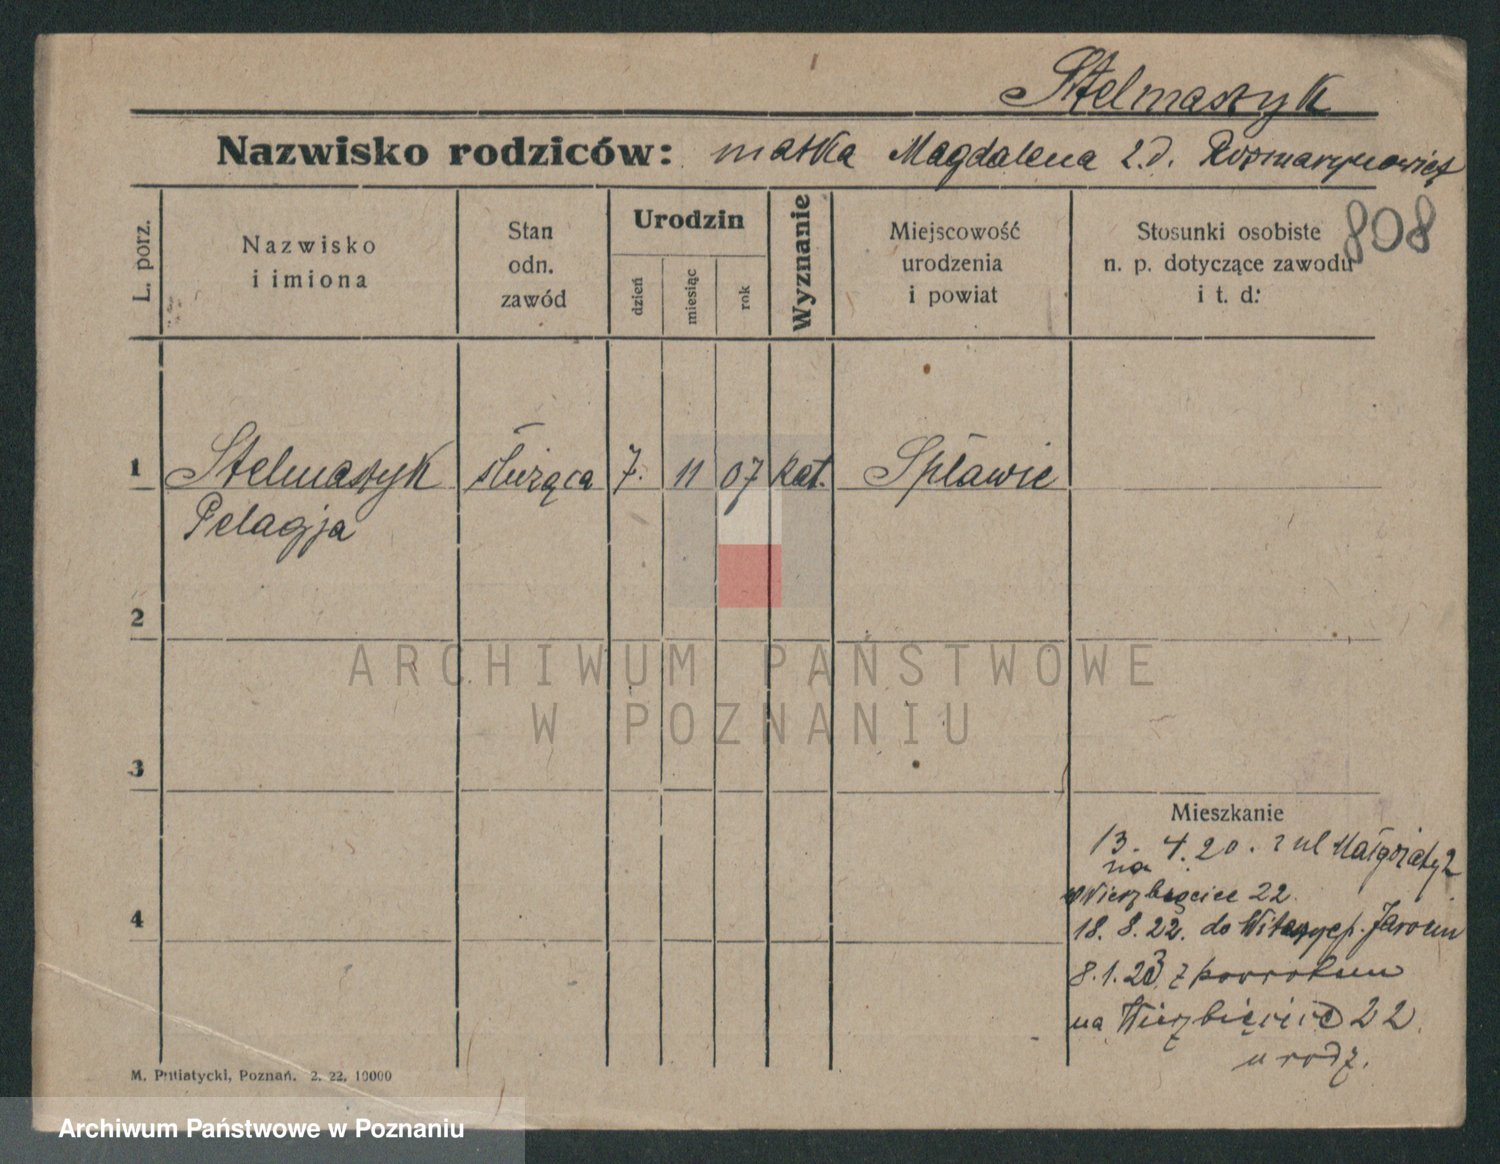 Stelmaszyk
Nazwisko rodziców: matka Magdalena 2.d.
808
L. porz.
Nazwisko
i imiona
Stan
odn.
zawód
Urodzin
dzień
miesiąc
rok
Wyznanie
Miejscowość
urodzenia
i powiat
Stosunki osobiste
n. p. dotyczące zawodu
i t. d.
1 Stelmaszyk służąca 7. 11 07 kat. Spławie
Pelagja
2
3
4
Mieszkanie
13. 4. 20. z ul Małgorzaty 2
na
Wierzbięcice 22
18. 8. 22. do Witaszyc p. Jarocin
8.1.23 z powrotem
na Wierzbięcice 22
u rodz.
M. Putiatycki, Poznań. 2. 22, 10000
ARCHIWUM PAŃSTWOWE
W POZNANIU
Archiwum Państwowe w Poznaniu